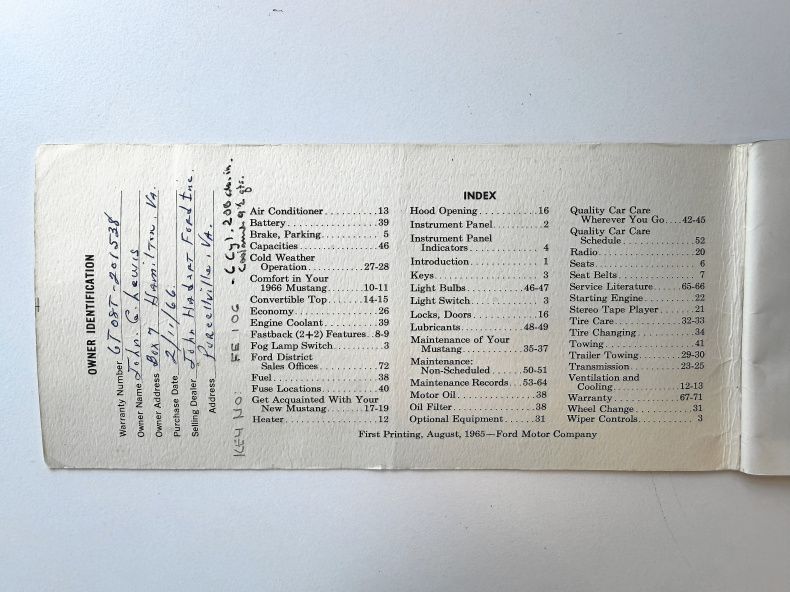 OWNER IDENTIFICATION
Warranty Number 6T08T-201538
Owner Name John C. Lewis
Owner Address Box 7 Hamilton, VA.
Purchase Date 2/11/66
Selling Dealer John Hadsept Ford Inc.
Address Purcellville, VA.
KEY NO: FE106 - 6 Cyl. 200 cu. in.
Coolant 9½ qts.
INDEX
Air Conditioner..........13
Battery..................39
Brake, Parking...........5
Capacities...............46
Cold Weather
Operation..........27-28
Comfort in Your
1966 Mustang.......10-11
Convertible Top.......14-15
Economy..................26
Engine Coolant...........39
Fastback (2+2) Features..8-9
Fog Lamp Switch..........3
Ford District
Sales Offices..........72
Fuel.....................38
Fuse Locations...........40
Get Acquainted With Your
New Mustang........17-19
Heater...................12
Hood Opening............16
Instrument Panel.........2
Instrument Panel
Indicators.............4
Introduction.............1
Keys.....................3
Light Bulbs..........46-47
Light Switch.............3
Locks, Doors............16
Lubricants...........48-49
Maintenance of Your
Mustang............35-37
Maintenance:
Non-Scheduled......50-51
Maintenance Records...53-64
Motor Oil...............38
Oil Filter..............38
Optional Equipment......31
Quality Car Care
Wherever You Go....42-45
Quality Car Care
Schedule..............52
Radio...................20
Seats....................6
Seat Belts...............7
Service Literature....65-66
Starting Engine.........22
Stereo Tape Player......21
Tire Care............32-33
Tire Changing...........34
Towing..................41
Trailer Towing.......29-30
Transmission.........23-25
Ventilation and
Cooling............12-13
Warranty.............67-71
Wheel Change............31
Wiper Controls...........3
First Printing, August, 1965—Ford Motor Company